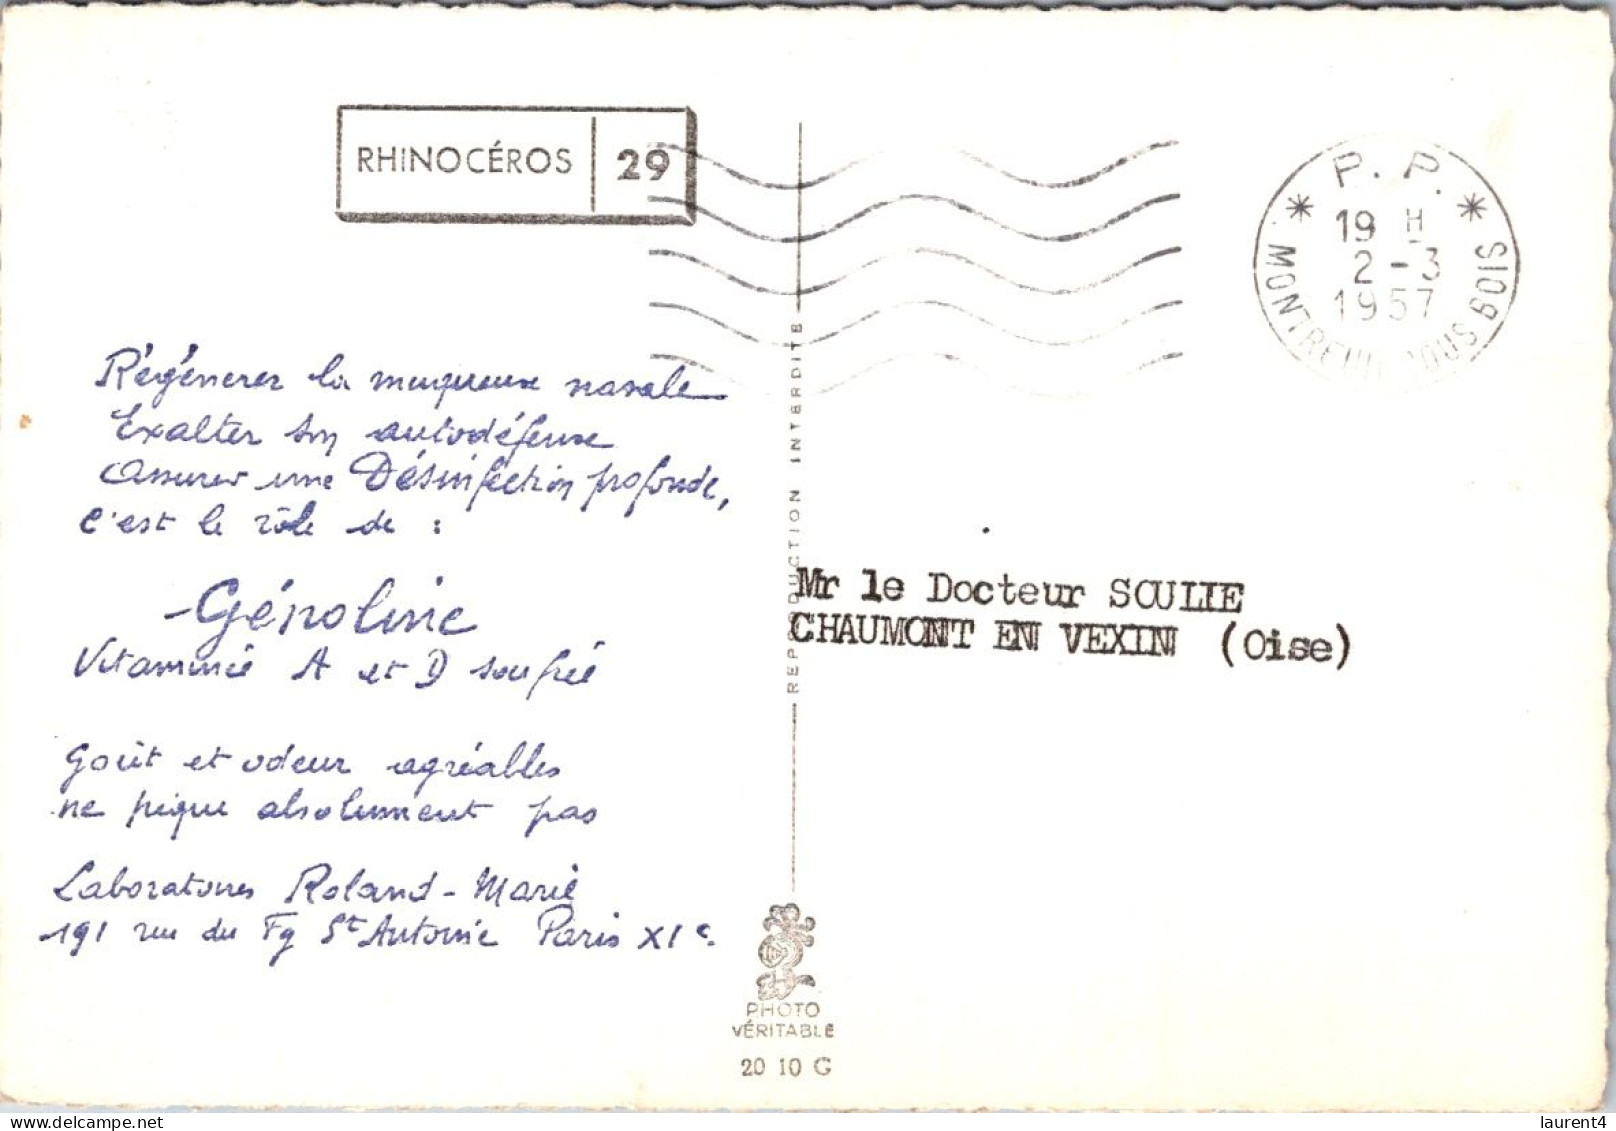 RHINOCÉROS 29
P. P.
19 H
2 - 3
1957
MONTREUIL SOUS BOIS
Régénerer la muqueuse nasale
Exalter son autodéfense
Assurer une Désinfection profonde,
C'est le rôle de :
- Génoline
Vitaminée A et D soufrée
Goût et odeur agréables
ne pique absolument pas
Laboratoires Roland-Marie
191 rue du Fg St Antoine Paris XIe.
REPRODUCTION INTERDITE
Mr le Docteur SOULIE
CHAUMONT EN VEXIN (Oise)
PHOTO
VÉRITABLE
20 10 G
laurent4